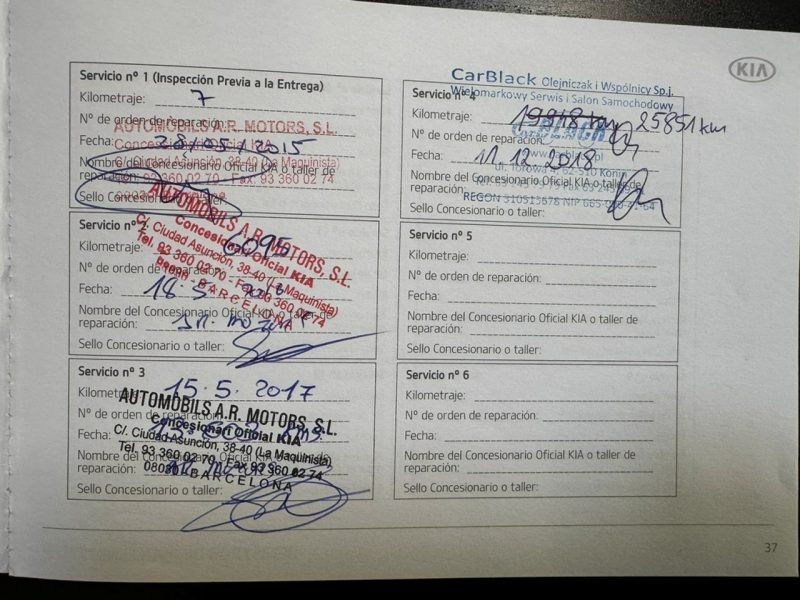 KIA
Servicio nº 1 (Inspección Previa a la Entrega)
Kilometraje: 7
Nº de orden de reparación:
AUTOMOBILS A.R. MOTORS, S.L.
Concesionari Oficial KIA
Fecha: 28/05/2015
C/. Ciudad Asunción, 38-40 (La Maquinista)
Nombre del Concesionario Oficial KIA o taller de
reparación:
Fax 93 360 02 74
Sello Concesionario o taller:
Servicio nº 2
Kilometraje: 6095
AUTOMOBILS A.R. MOTORS, S.L.
Concesionari Oficial KIA
C/. Ciudad Asunción, 38-40 (La Maquinista)
Tel. 93 360 02 70 - Fax 93 360 02 74
BARCELONA
Nº de orden de reparación:
Fecha: 18-5-
Nombre del Concesionario Oficial KIA o taller de
reparación:
Sello Concesionario o taller:
Servicio nº 3
Kilometraje: 15.5.2017
AUTOMOBILS A.R. MOTORS, S.L.
Nº de orden de reparación:
Concesionari Oficial KIA
Fecha:
C/. Ciudad Asunción, 38-40 (La Maquinista)
Nombre del Concesionario Oficial KIA o taller de
Tel. 93 360 02 70 - Fax 93 360 02 74
reparación:
BARCELONA
Sello Concesionario o taller:
CarBlack Olejniczak i Wspólnicy Sp.j.
Wielomarkowy Serwis i Salon Samochodowy
Servicio nº 4
Kilometraje: 25851 km
Nº de orden de reparación:
Fecha: 11.12.2018
Nombre del Concesionario Oficial KIA o taller de
reparación:
Sello Concesionario o taller:
Servicio nº 5
Kilometraje:
Nº de orden de reparación:
Fecha:
Nombre del Concesionario Oficial KIA o taller de
reparación:
Sello Concesionario o taller:
Servicio nº 6
Kilometraje:
Nº de orden de reparación:
Fecha:
Nombre del Concesionario Oficial KIA o taller de
reparación:
Sello Concesionario o taller:
37